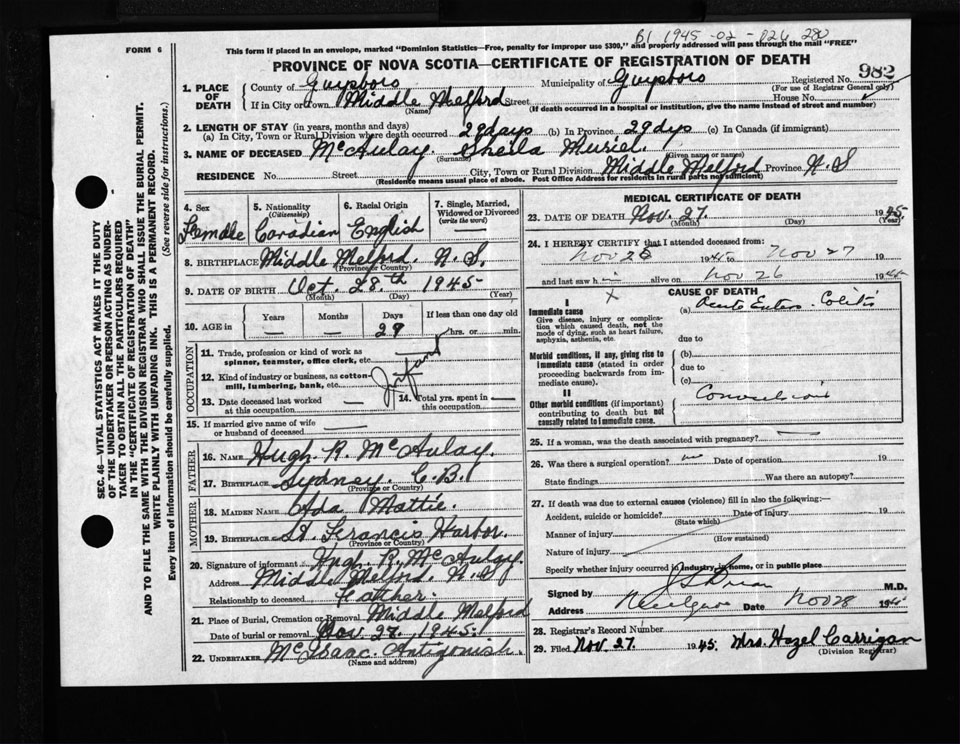 B1 1945-02-126 280
FORM 6
This form if placed in an envelope, marked "Dominion Statistics—Free, penalty for improper use $300," and properly addressed will pass through the mail "FREE"
PROVINCE OF NOVA SCOTIA—CERTIFICATE OF REGISTRATION OF DEATH
982
1. PLACE OF DEATH
County of Guysboro Municipality of Guysboro Registered No.
(For use of Registrar General only)
If in City or Town Middle Melford Street House No.
(Name) (If death occurred in a hospital or institution, give the name instead of street and number)
2. LENGTH OF STAY (in years, months and days)
(a) In City, Town or Rural Division where death occurred 29 days (b) In Province 29 dys (c) In Canada (if immigrant)
3. NAME OF DECEASED McAulay. Sheila Muriel.
(Surname) (Given name or names)
RESIDENCE No. Street City, Town or Rural Division Middle Melford Province N.S
(Residence means usual place of abode. Post Office Address for residents in rural parts not sufficient)
4. Sex Female
5. Nationality (Citizenship) Canadian
6. Racial Origin English
7. Single, Married, Widowed or Divorced (write the word) —
8. BIRTHPLACE Middle Melford. N.S.
(Province or Country)
9. DATE OF BIRTH Oct. 28th 1945
(Month) (Day) (Year)
10. AGE in Years — Months — Days 29 If less than one day old hrs. or min.
OCCUPATION
11. Trade, profession or kind of work as spinner, teamster, office clerk, etc.
Infant
12. Kind of industry or business, as cotton-mill, lumbering, bank, etc.
13. Date deceased last worked at this occupation —
14. Total yrs. spent in this occupation —
15. If married give name of wife or husband of deceased —
FATHER
16. NAME Hugh. R. McAulay.
17. BIRTHPLACE Sydney. C.B.
(Province or Country)
MOTHER
18. MAIDEN NAME Ada Mattie.
19. BIRTHPLACE St. Francis Harbor.
(Province or Country)
20. Signature of informant Hugh. R. McAulay.
Address Middle Melford. N.S
Relationship to deceased Father.
21. Place of Burial, Cremation or Removal Middle Melford
Date of burial or removal Nov. 27, 1945.
22. UNDERTAKER McIsaac. Antigonish.
(Name and address)
MEDICAL CERTIFICATE OF DEATH
23. DATE OF DEATH Nov. 27. 1945
(Month) (Day) (Year)
24. I HEREBY CERTIFY that I attended deceased from:
Nov 26 1945 to Nov 27
and last saw h alive on Nov 26 1945
CAUSE OF DEATH
I
Immediate cause
Give disease, injury or complication which caused death, not the mode of dying, such as heart failure, asphyxia, asthenia, etc.
(a) Acute Entero-Colitis
due to
Morbid conditions, if any, giving rise to immediate cause (stated in order proceeding backwards from immediate cause).
(b)
due to
(c)
II
Other morbid conditions (if important) contributing to death but not causally related to immediate cause.
Convulsions
25. If a woman, was the death associated with pregnancy? —
26. Was there a surgical operation? Date of operation 19
State findings Was there an autopsy?
27. If death was due to external causes (violence) fill in also the following:—
Accident, suicide or homicide? Date of injury 19
(State which)
Manner of injury
(How sustained)
Nature of injury
Specify whether injury occurred in industry, in home, or in public place
Signed by M.D.
Address Date Nov 28 1945
28. Registrar's Record Number
29. Filed Nov 27. 1945. Mrs. Hazel Carrigan
(Division Registrar)
SEC. 46—VITAL STATISTICS ACT MAKES IT THE DUTY
OF THE UNDERTAKER OR PERSON ACTING AS UNDERTAKER TO OBTAIN ALL THE PARTICULARS REQUIRED
IN THE "CERTIFICATE OF REGISTRATION OF DEATH"
AND TO FILE THE SAME WITH THE DIVISION REGISTRAR WHO SHALL ISSUE THE BURIAL PERMIT.
WRITE PLAINLY WITH UNFADING INK. THIS IS A PERMANENT RECORD.
Every item of Information should be carefully supplied. (See reverse side for instructions.)